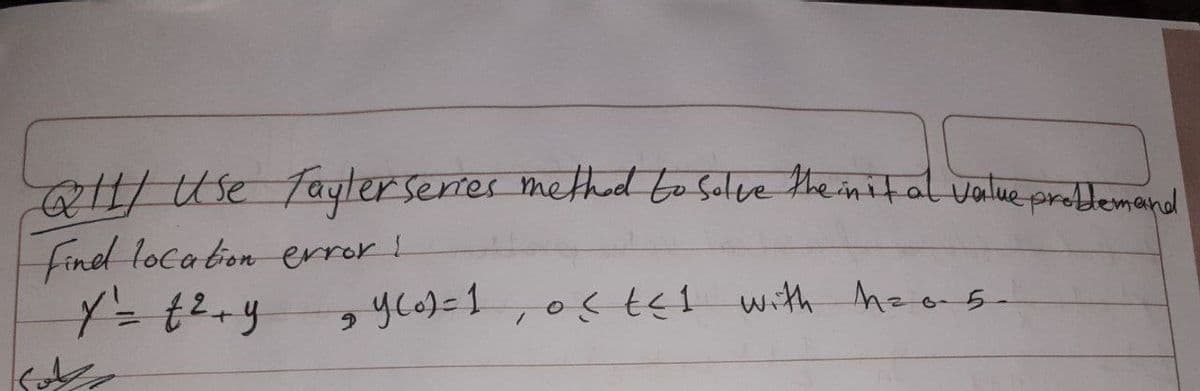 Q11/ Use Tayler series method to solve the inital value problem and
find location error!
y' = t²+y , y(0)=1 , 0 ≤ t ≤ 1 with h=0.5-